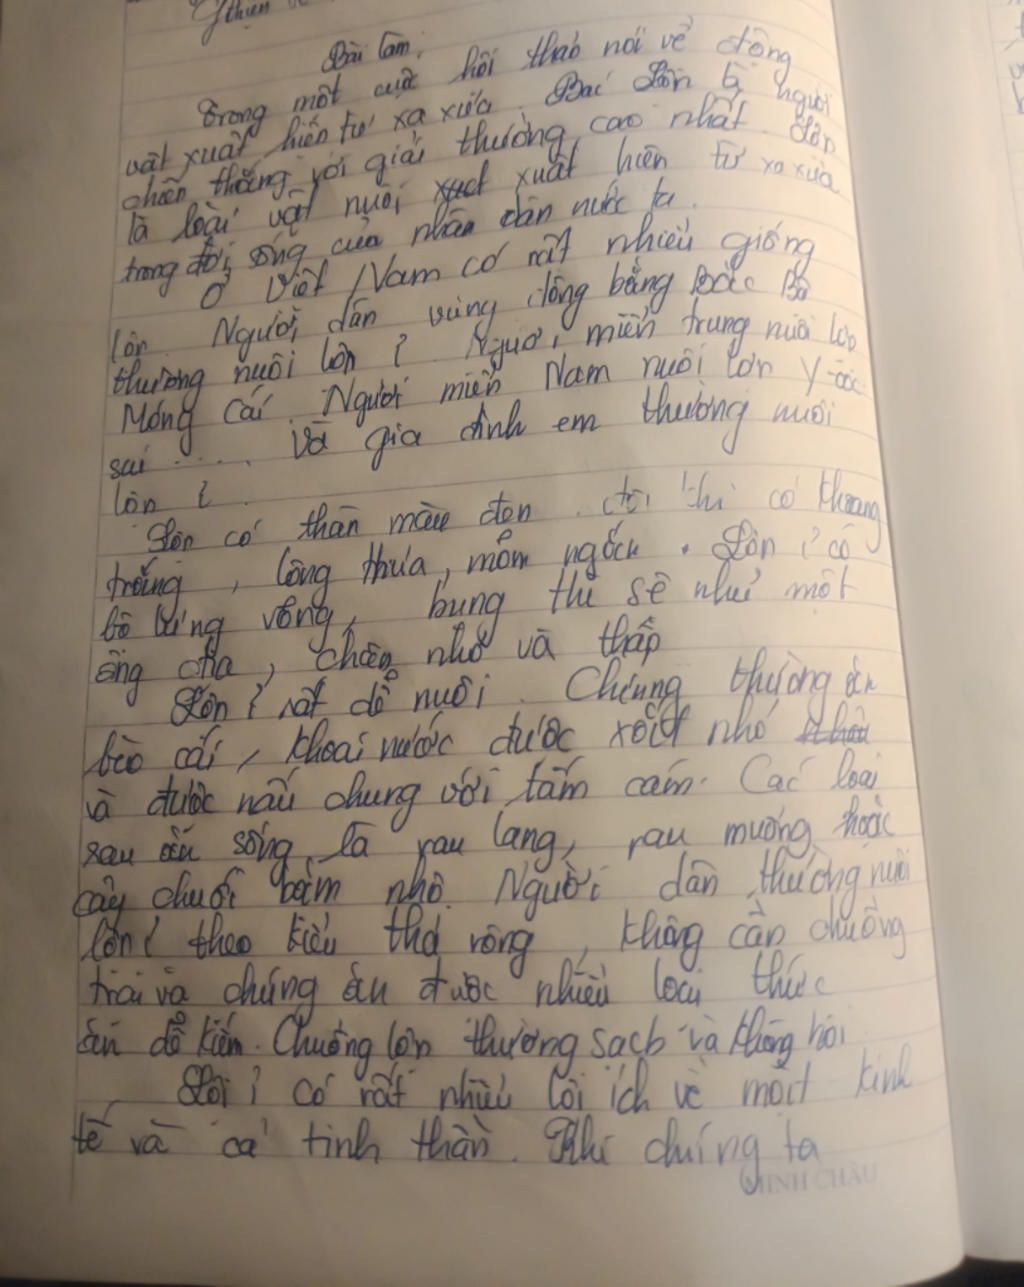 Bài làm:
Trong một cuộc hội thảo nói về động
vật xuất hiện từ xa xưa. Bác Lợn là người
chiến thắng với giải thưởng cao nhất. Lợn
là loài vật nuôi xuất hiện từ xa xưa
trong đời sống của nhân dân nước ta.
Ở Việt Nam có rất nhiều giống
lợn. Người dân vùng đồng bằng Bắc Bộ
thường nuôi lợn ỉ. Người miền trung nuôi lợn
Móng Cái. Người miền Nam nuôi lợn Y-óoc
sai ..... Và gia đình em thường nuôi
lợn ỉ.
Lợn có thân màu đen. đôi khi có khoang
trắng, lông thưa, mõm ngắn. Lợn ỉ có
bộ lưng võng, bụng thì sệ như một
ông địa, chân nhỏ và thấp
Lợn ỉ rất dễ nuôi. Chúng thường ăn
bèo cái, khoai nước được xắt nhỏ
và được nấu chung với tấm cám. Các loại
rau ăn sống là rau lang, rau muống hoặc
cây chuối bằm nhỏ. Người dân thường nuôi
lợn ỉ theo kiểu thả rông, không cần chuồng
trại và chúng ăn được nhiều loại thức
ăn dễ kiếm. Chuồng lợn thường sạch và không hôi
Lợi ỉ có rất nhiều lợi ích về mặt kinh
tế và cả tinh thần. Khi chúng ta
MINH CHÂU